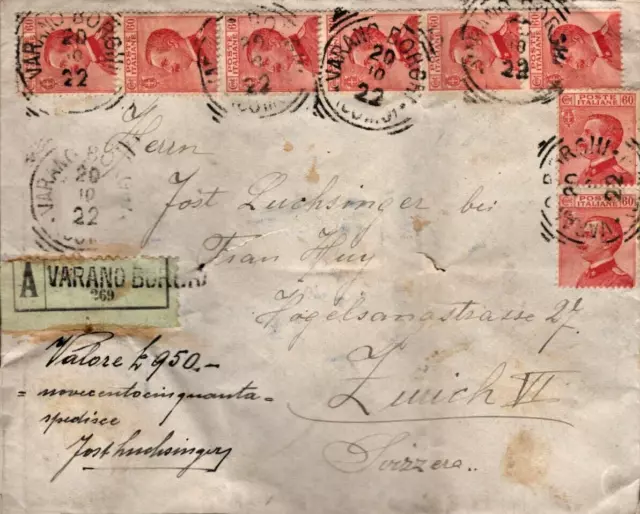 60 POSTE ITALIANE 60
VARANO BORGHI
20
10
22
(COMO)
Herrn
Jost Luchsinger bei
Frau Huy
Vogelsangstrasse 27.
Zürich VI
Svizzera..
VARANO BORGHI
20
10
22
A VARANO BORGHI
269
Valore £ 950.-
= novecentocinquanta =
spedisce
Jost Luchsinger
POSTE
ITALIANE
60
POSTE
ITALIANE
60